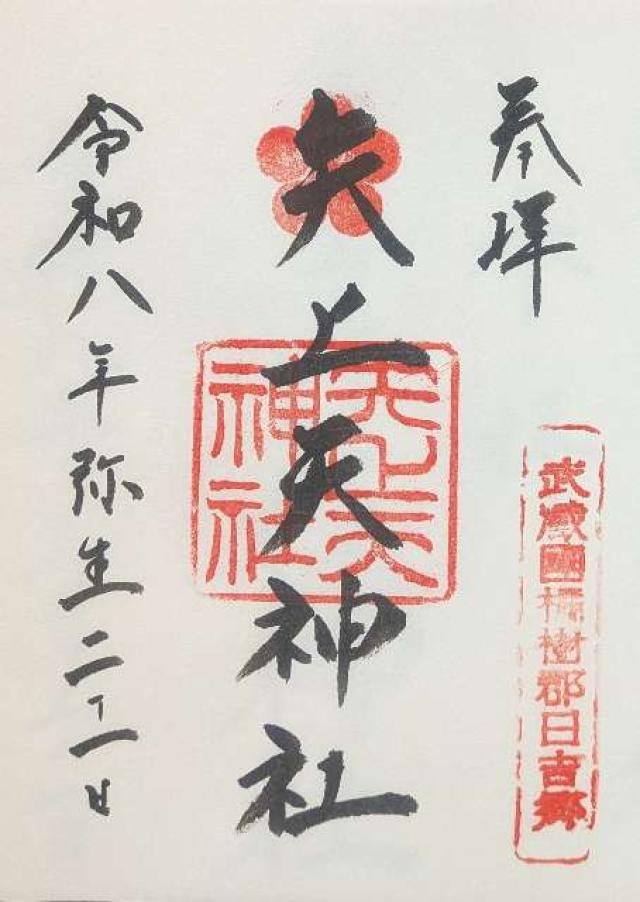 奉拝
武蔵國橘樹郡日吉郷
矢上天神社
矢上天
神社
令和八年弥生二十日